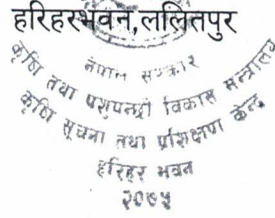 हरिहरभवन,ललितपुर
नेपाल सरकार
कृषि तथा पशुपन्छी विकास मन्त्रालय
कृषि सूचना तथा प्रशिक्षण केन्द्र
हरिहर भवन
२०७५